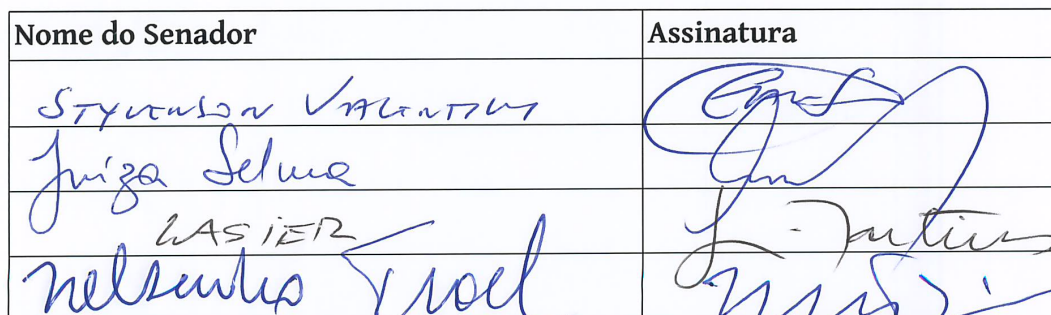 Nome do Senador Assinatura
STYVENSON VALENTIM
Juíza Selma
LASIER L. Martins
Nelsinho Trad